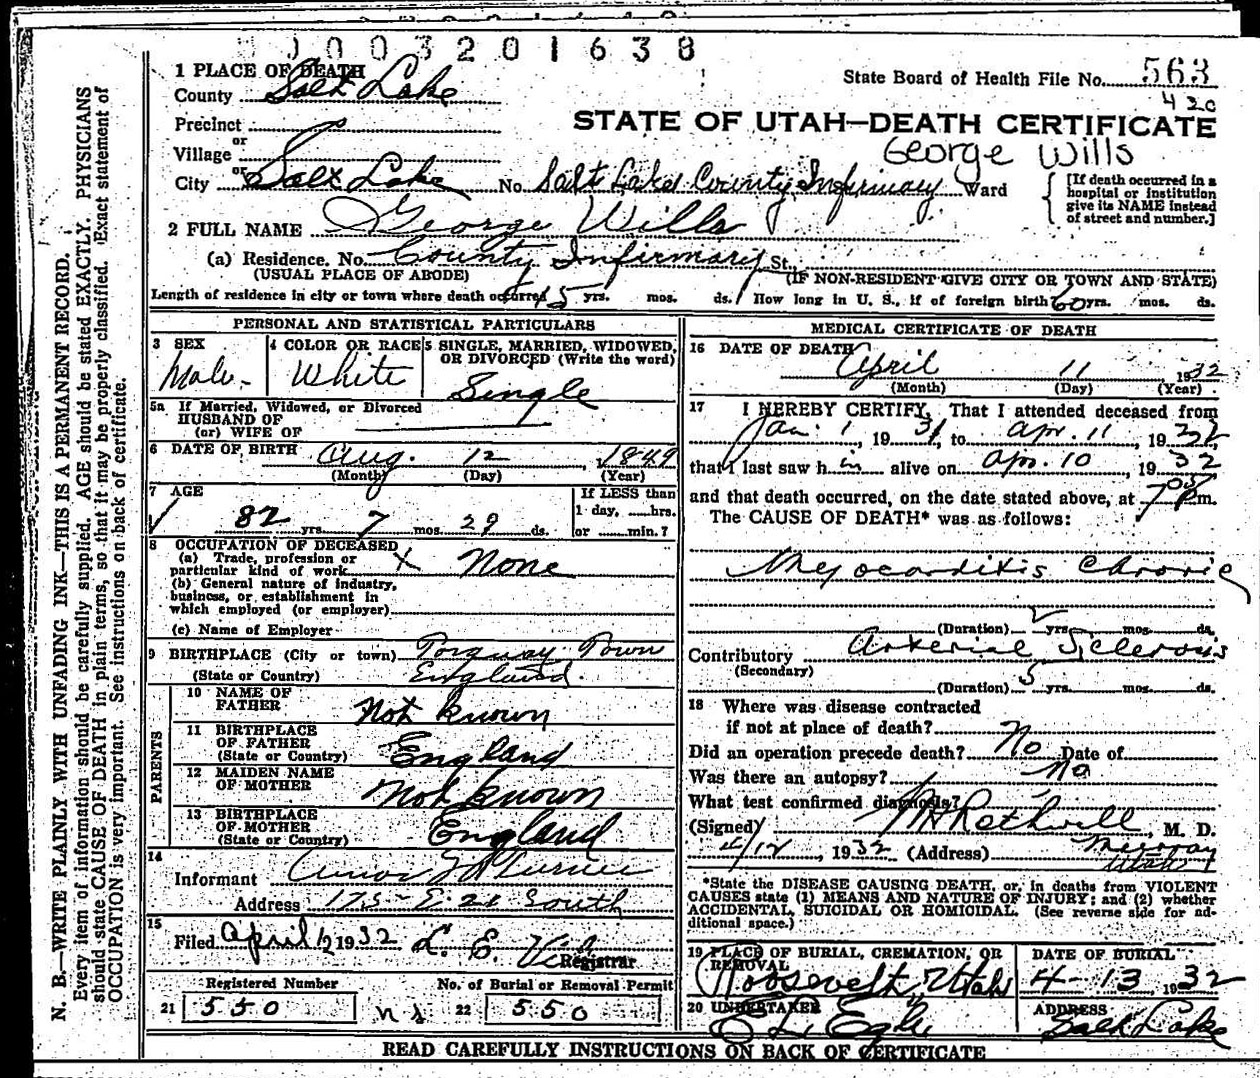 1003201638
1 PLACE OF DEATH
State Board of Health File No. 563
County Salt Lake
420
Precinct
STATE OF UTAH—DEATH CERTIFICATE
or
Village
George Wills
or
City Salt Lake No. Salt Lake County Infirmary Ward
[If death occurred in a
hospital or institution
give its NAME instead
of street and number.]
2 FULL NAME George Wills
(a) Residence. No. County Infirmary St.
(USUAL PLACE OF ABODE) (IF NON-RESIDENT GIVE CITY OR TOWN AND STATE)
Length of residence in city or town where death occurred 45 yrs. mos. ds. How long in U. S., if of foreign birth? 60 yrs. mos. ds.
PERSONAL AND STATISTICAL PARTICULARS
3 SEX
Male
4 COLOR OR RACE
White
5 SINGLE, MARRIED, WIDOWED,
OR DIVORCED (Write the word)
Single
5a If Married, Widowed, or Divorced
HUSBAND OF
(or) WIFE OF
6 DATE OF BIRTH Aug. 12, 1849
(Month) (Day) (Year)
7 AGE
82 yrs. 7 mos. 29 ds.
If LESS than
1 day, hrs.
or min.?
8 OCCUPATION OF DECEASED
(a) Trade, profession or
particular kind of work x None
(b) General nature of industry,
business, or establishment in
which employed (or employer)
(c) Name of Employer
9 BIRTHPLACE (City or town) Torquay Town
(State or Country) England.
PARENTS
10 NAME OF
FATHER Not known
11 BIRTHPLACE
OF FATHER
(State or Country) England
12 MAIDEN NAME
OF MOTHER Not known
13 BIRTHPLACE
OF MOTHER
(State or Country) England
14
Informant
Address 175 E. 21 South
15
Filed April 12 1932 L. E.
Registrar
Registered Number No. of Burial or Removal Permit
21 550 22 550
MEDICAL CERTIFICATE OF DEATH
16 DATE OF DEATH April 11 1932
(Month) (Day) (Year)
17 I HEREBY CERTIFY, That I attended deceased from
Jan. 1, 1931, to Apr. 11, 1932
that I last saw h im alive on Apr. 10, 1932
and that death occurred, on the date stated above, at 7 05 P m.
The CAUSE OF DEATH* was as follows:
Myocarditis Chronic
(Duration) 2 yrs. mos. ds.
Contributory Arterial Sclerosis
(Secondary)
(Duration) 5 yrs. mos. ds.
18 Where was disease contracted
if not at place of death?
Did an operation precede death? No Date of
Was there an autopsy? No
What test confirmed diagnosis?
(Signed) Rothwell, M. D.
4/12, 1932 (Address) Murray
Utah
*State the DISEASE CAUSING DEATH, or, in deaths from VIOLENT
CAUSES state (1) MEANS AND NATURE OF INJURY; and (2) whether
ACCIDENTAL, SUICIDAL OR HOMICIDAL. (See reverse side for ad-
ditional space.)
19 PLACE OF BURIAL, CREMATION, OR
REMOVAL
Roosevelt, Utah
DATE OF BURIAL
4-13, 1932
20 UNDERTAKER
ADDRESS
Salt Lake
READ CAREFULLY INSTRUCTIONS ON BACK OF CERTIFICATE
N. B.—WRITE PLAINLY WITH UNFADING INK—THIS IS A PERMANENT RECORD.
Every item of information should be carefully supplied. AGE should be stated EXACTLY. PHYSICIANS
should state CAUSE OF DEATH in plain terms, so that it may be properly classified. Exact statement of
OCCUPATION is very important. See instructions on back of certificate.